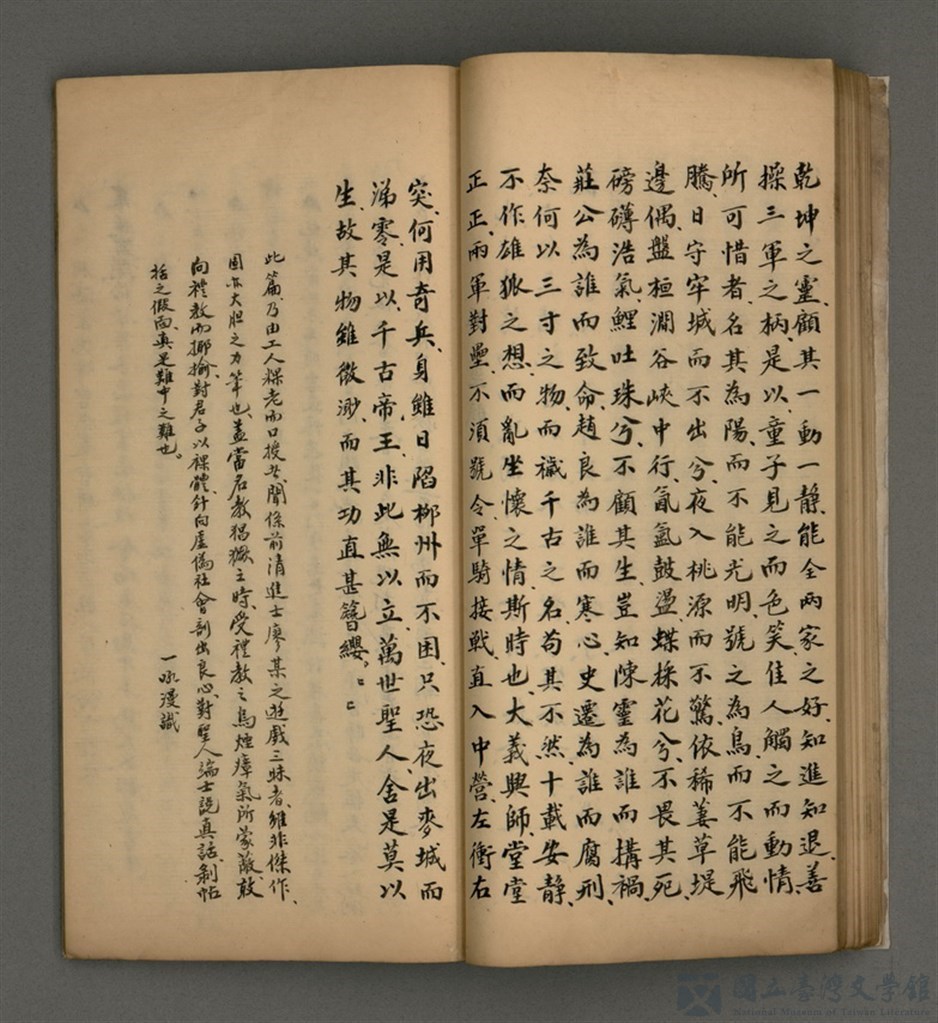 乾坤之靈、顧其一動一静、能全兩家之好、知進知退、善
操三軍之柄、是以童子見之而色笑、佳人觸之而動情
所可惜者、名其為陽、而不能光明、號之為鳥、而不能飛
騰、日守牢城而不出兮、夜入桃源而不驚、依稀萋草堤
邊、偶盤桓澗谷峽中行、氤氳鼓盪、蝶採花兮、不畏其死、
磅礡浩氣、鯉吐珠兮、不顧其生、豈知陳靈為誰而搆禍、
莊公為誰而致命、趙良為誰而寒心、史遷為誰而腐刑、
奈何以三寸之物、而穢千古之名、苟其不然、十載安静、
不作雄狼之想、而亂坐懷之情、斯時也、大義興師、堂堂
正正、兩軍對壘、不須號令、單騎接戰、直入中營、左衝右
突、何用奇兵、身雖日陷柳州而不困、只恐夜出麥城而
涕零、是以千古帝王、非此無以立、萬世聖人、舍是莫以
生、故其物雖微渺、而其功直甚簪纓。
此篇乃由工人粿老而口授者、聞係前清進士廖某之遊戲三昧者、雖非傑作、
固亦大胆之力筆也、蓋當名教猖獗之時、受禮教之烏煙瘴氣所蒙蔽、敢
向禮教而揶揄、對君子以裸體、針向虛偽社會剖出良心、對聖人端士説真話、剝帖
括之假面、真是難中之難也。
一吼漫識
國立臺灣文學館
National Museum of Taiwan Literature